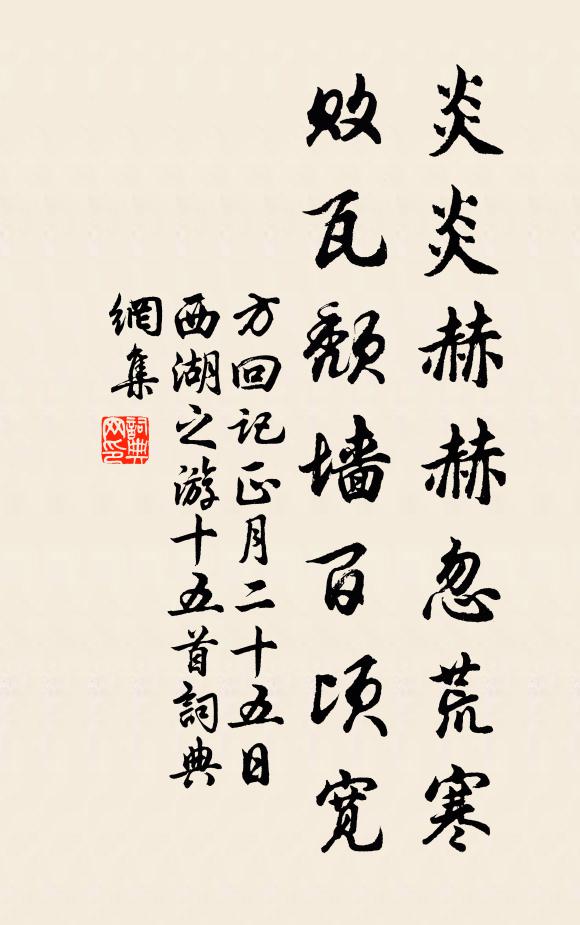 炎炎赫赫忽荒寒
败瓦颓墙百顷宽
方回记正月二十五日
西湖之游十五首詞典
網集
詞典网印